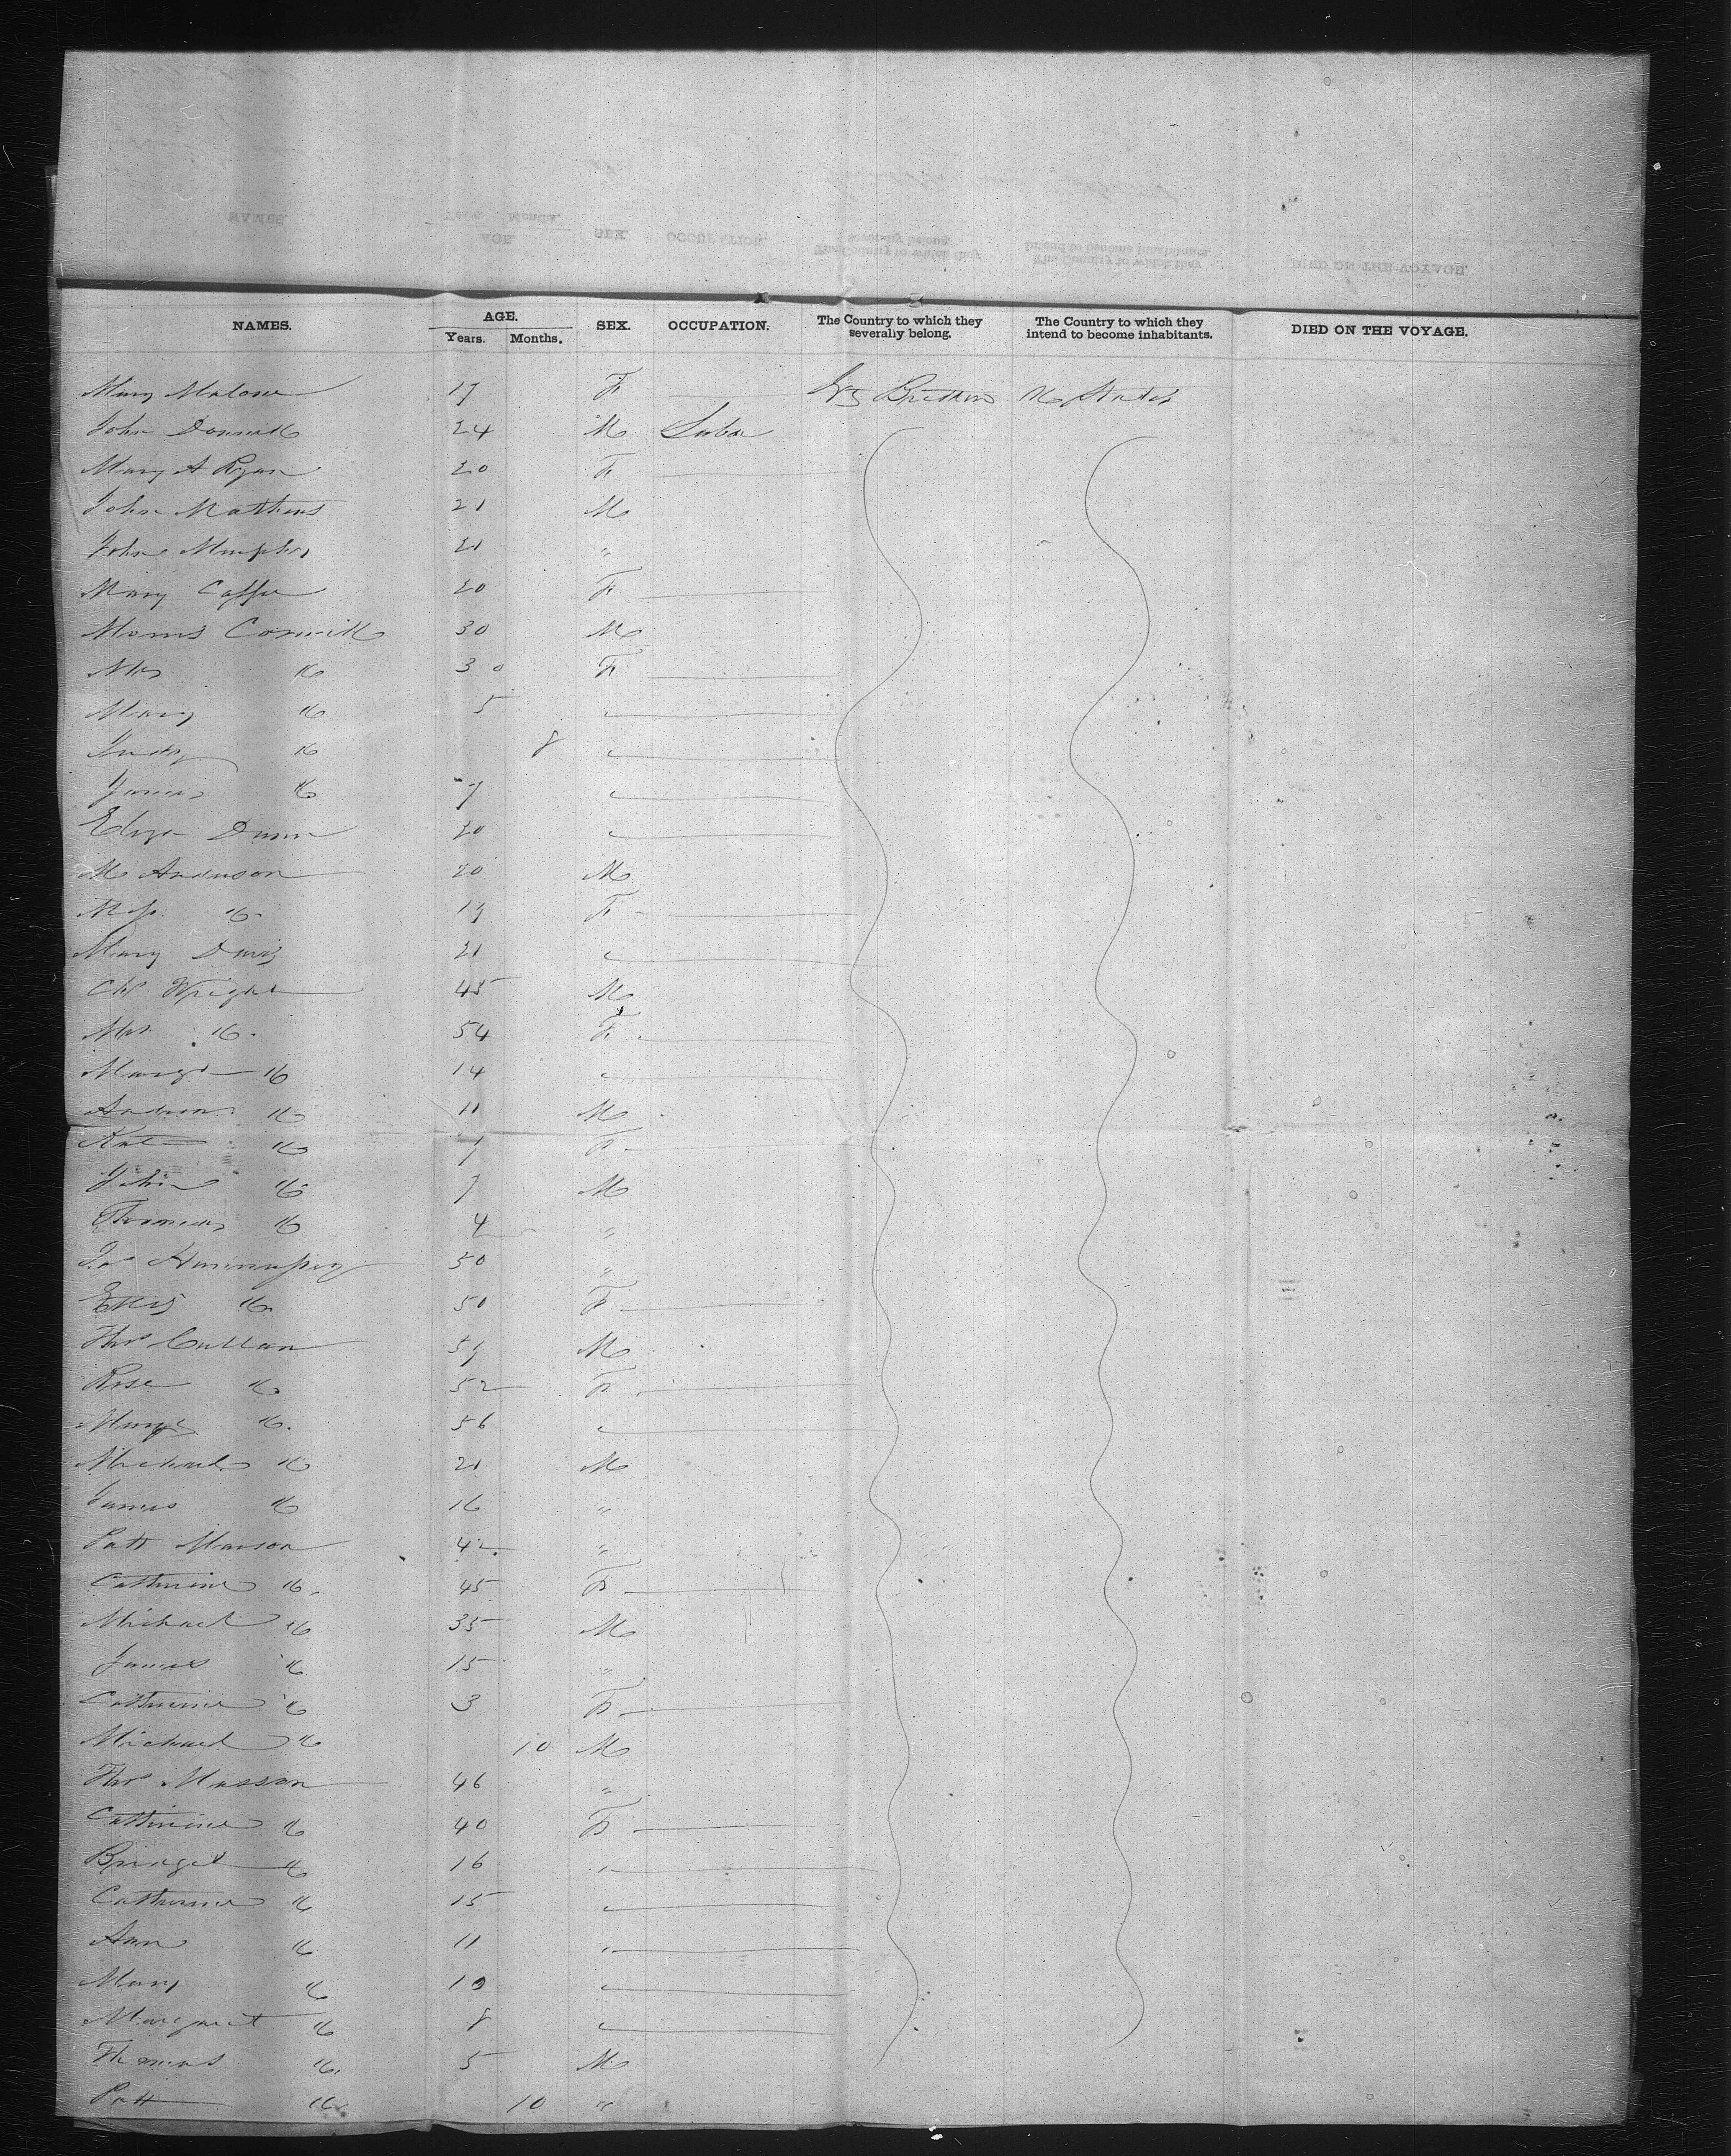 NAMES. AGE. SEX. OCCUPATION. The Country to which they severally belong. The Country to which they intend to become inhabitants. DIED ON THE VOYAGE.
Years. Months.
Mary Malone 19 F Gt Britain U States
John Donnell 24 M Labor
Mary A Ryan 20 F
John Mathews 21 M
John Murphy 21 "
Mary Caffre 20 F
Morris Connell 30 M
Mrs " 30 F
Mary " 5 "
Judy " 8 "
James " 7 "
Eliza Dunn 20 "
M Anderson 20 M
Miss " 19 F
Mary Davis 21 "
Chs Wright 45 M
Mrs " 54 F
Margt " 14 "
Andrew " 11 M
Kate " 9 F
John " 7 M
Thomas " 4 "
Jas 50 "
" 50 F
Thos Cullan 59 M
Rose " 52 F
Margt " 56 "
Michael " 21 M
James " 16 "
Patt Manson 42 "
Catherine " 45 F
Michael " 35 M
James " 15 "
Catherine " 3 F
Michael " 10 M
Thos Masson 46 "
Catherine " 40 F
Bridget " 16 "
Catherine " 15 "
Ann " 11 "
Mary " 10 "
Margaret " 8 "
Thomas " 5 M
Patt " 10 "